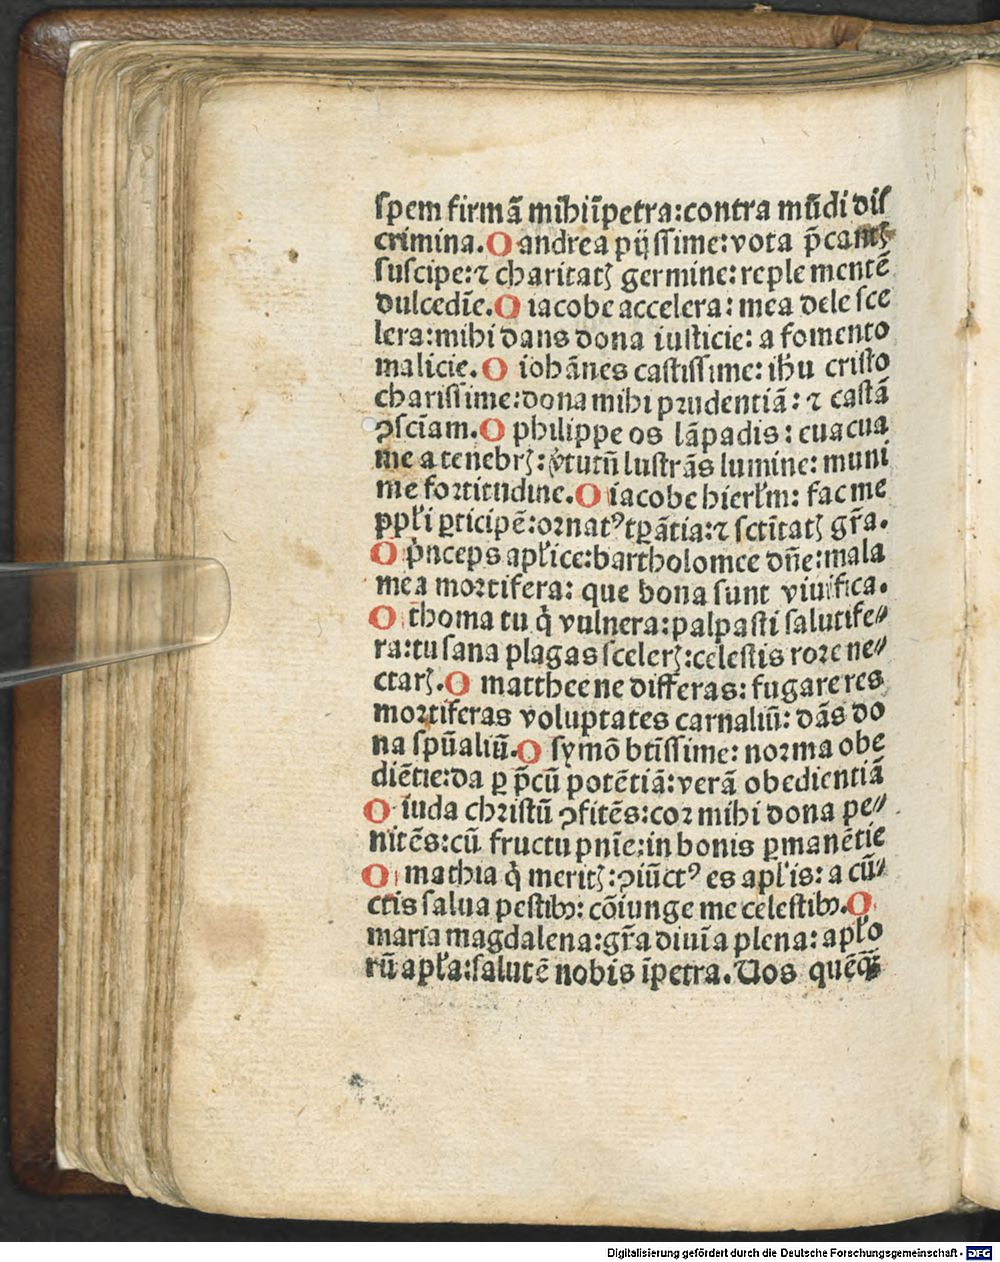 ſpem firmã mihi ĩpetra:contra mũdi diſ
crimina.O andrea pijſſime:vota p̃cantꝫ
ſuſcipe:⁊ charitatꝫ germine:reple mentẽ
dulcedĩe.O iacobe accelera: mea dele ſce
lera:mihi dans dona iuſticie: a fomento
malicie.O iohãnes caſtiſſime: ihũ criſto
chariſſime:dona mihi pꝛudentiã: ⁊ caſtã
ꝯſcĩam.O philippe os lãpadis: euacua
me a tenebrꝫ: v̓tutũ luſtrãs lumine: muni
me foꝛtitudine.O iacobe hierłm: fac me
ppłi ꝑticipẽ:oꝛnatꝰ tꝑãtia:⁊ ſctĩtatꝫ gr̃a.
O p̓nceps apłice:bartholomee dñe:mala
mea moꝛtifera: que bona ſunt viuifica.
O thoma tu q̓ vulnera:palpaſti ſalutife⸗
ra:tu ſana plagas ſcelerꝫ:celeſtis roꝛe ne⸗
ctarꝫ.O matthee ne differas: fugare res
moꝛtiferas voluptates carnaliũ: dãs do
na ſpũaliũ.O ſymõ btĩſſime: noꝛma obe
diẽtie:da ꝑ p̃cũ potẽtiã:verã obedientiã
O iuda chꝛiſtũ ꝯfitẽs:coꝛ mihi dona pe⸗
nitẽs:cũ fructu pnĩe:in bonis ꝑmanẽtie
O mathia q̓ meritꝫ:ꝯiũctꝰ es apłis: a cũ⸗
ctis ſalua peſtibꝫ: cõiunge me celeſtibꝫ.O
maria magdalena:gr̃a diuĩa plena: apło
rũ apła:ſalutẽ nobis ĩpetra.Uos quẽqꝫ
Digitalisierung gefördert durch die Deutsche Forschungsgemeinschaft - DFG